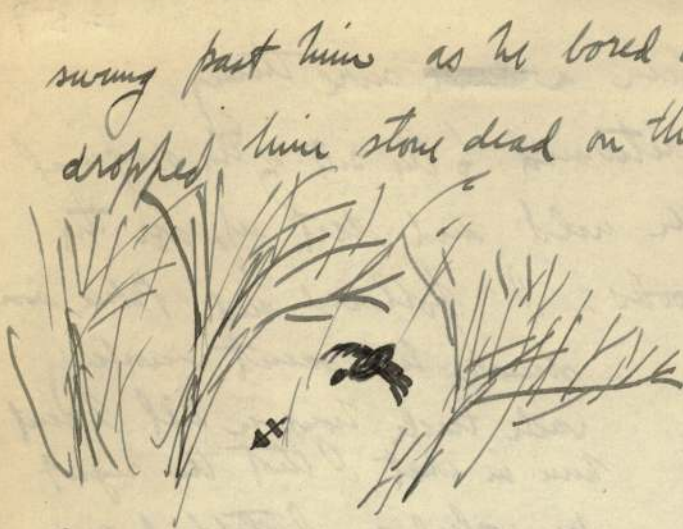 swung past him as he bored
dropped him stone dead on th